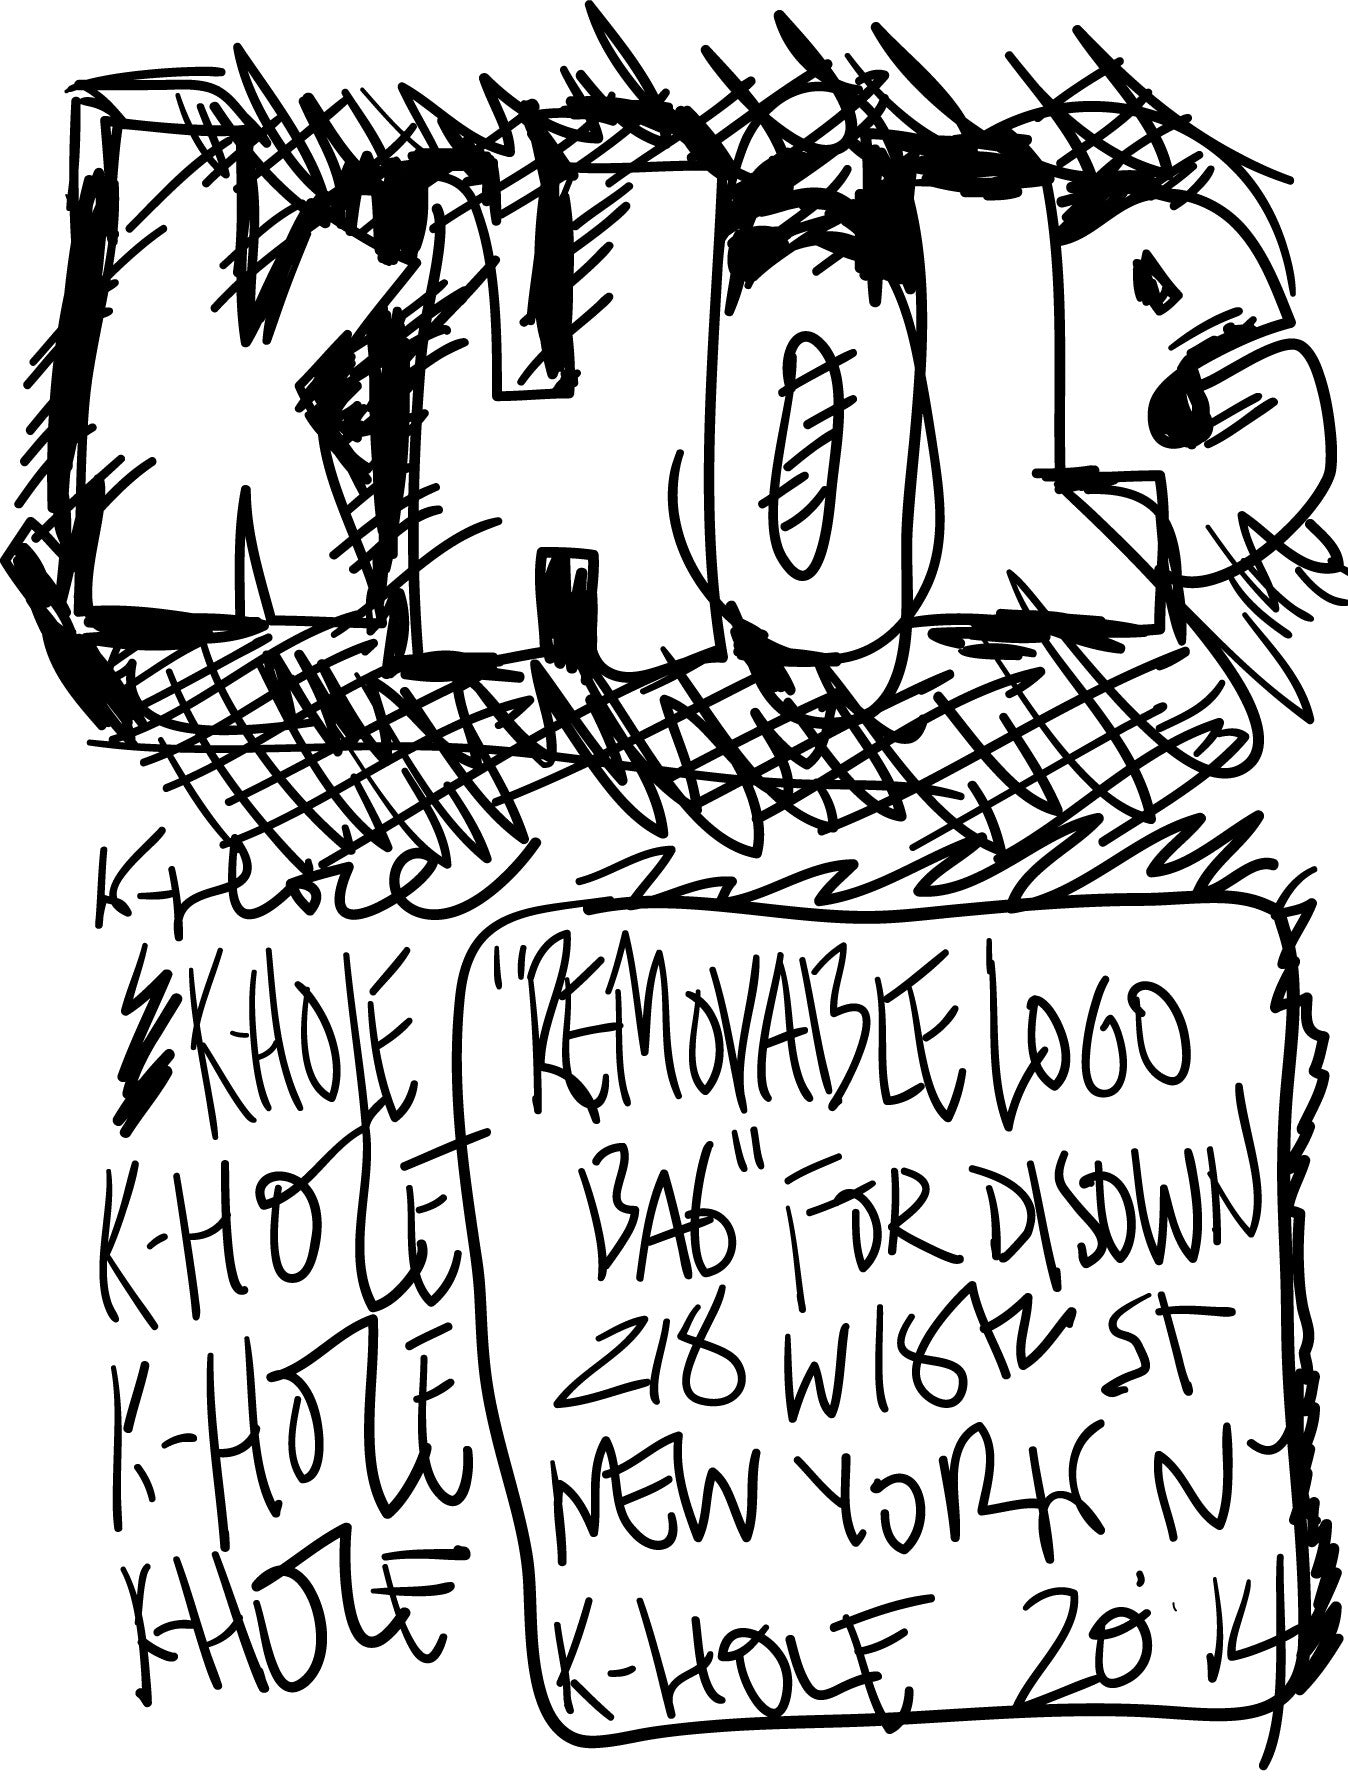 KHOLE
K-HOLE
K-HOLE
K-HOLE
K-HOLE
K-HOLE
"REMOVABLE LOGO
BAG" FOR DISOWN
218 W 18TH ST
NEW YORK NY
K-HOLE 2014